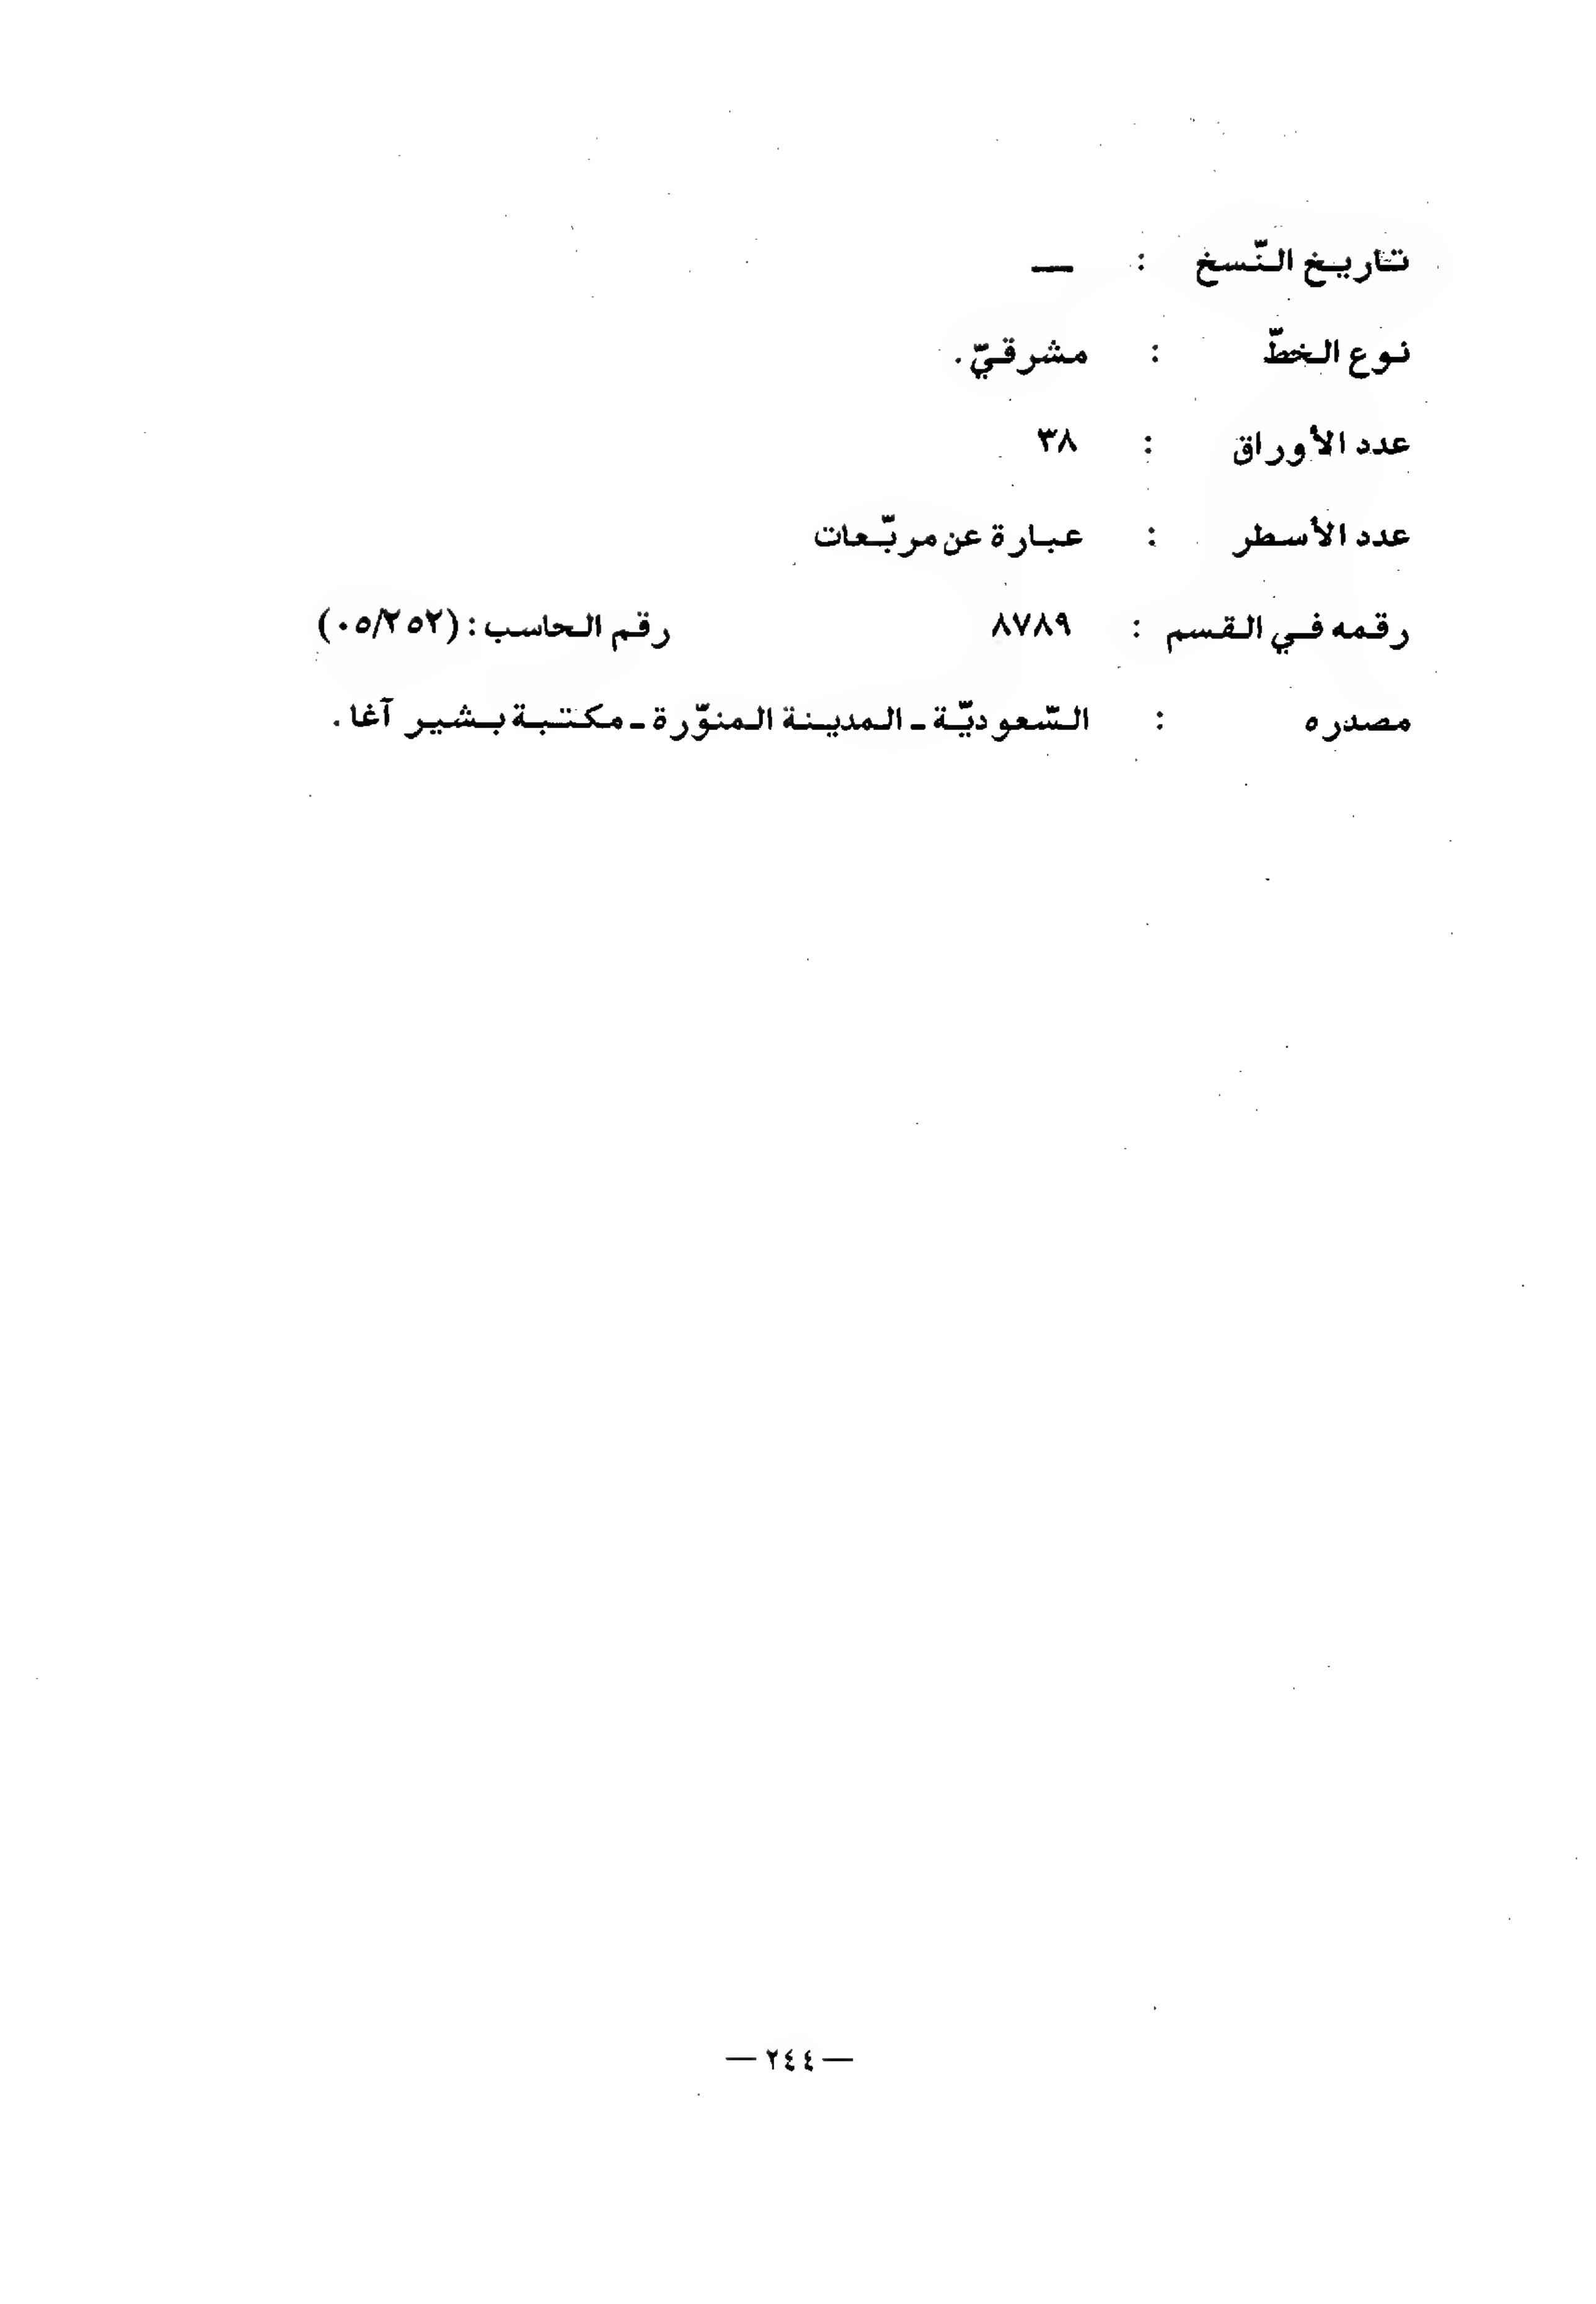 تاريخ النّسخ : —
نوع الخطّ : مشرقيّ .
عدد الأوراق : ٣٨
عدد الأسطر : عبارة عن مربّعات
رقمه في القسم : ٨٧٨٩ رقم الحاسب : (٠٥/٢٥٢)
مصدره : السّعوديّة ـ المدينة المنوّرة ـ مكتبة بشير آغا .
— ٢٤٤ —